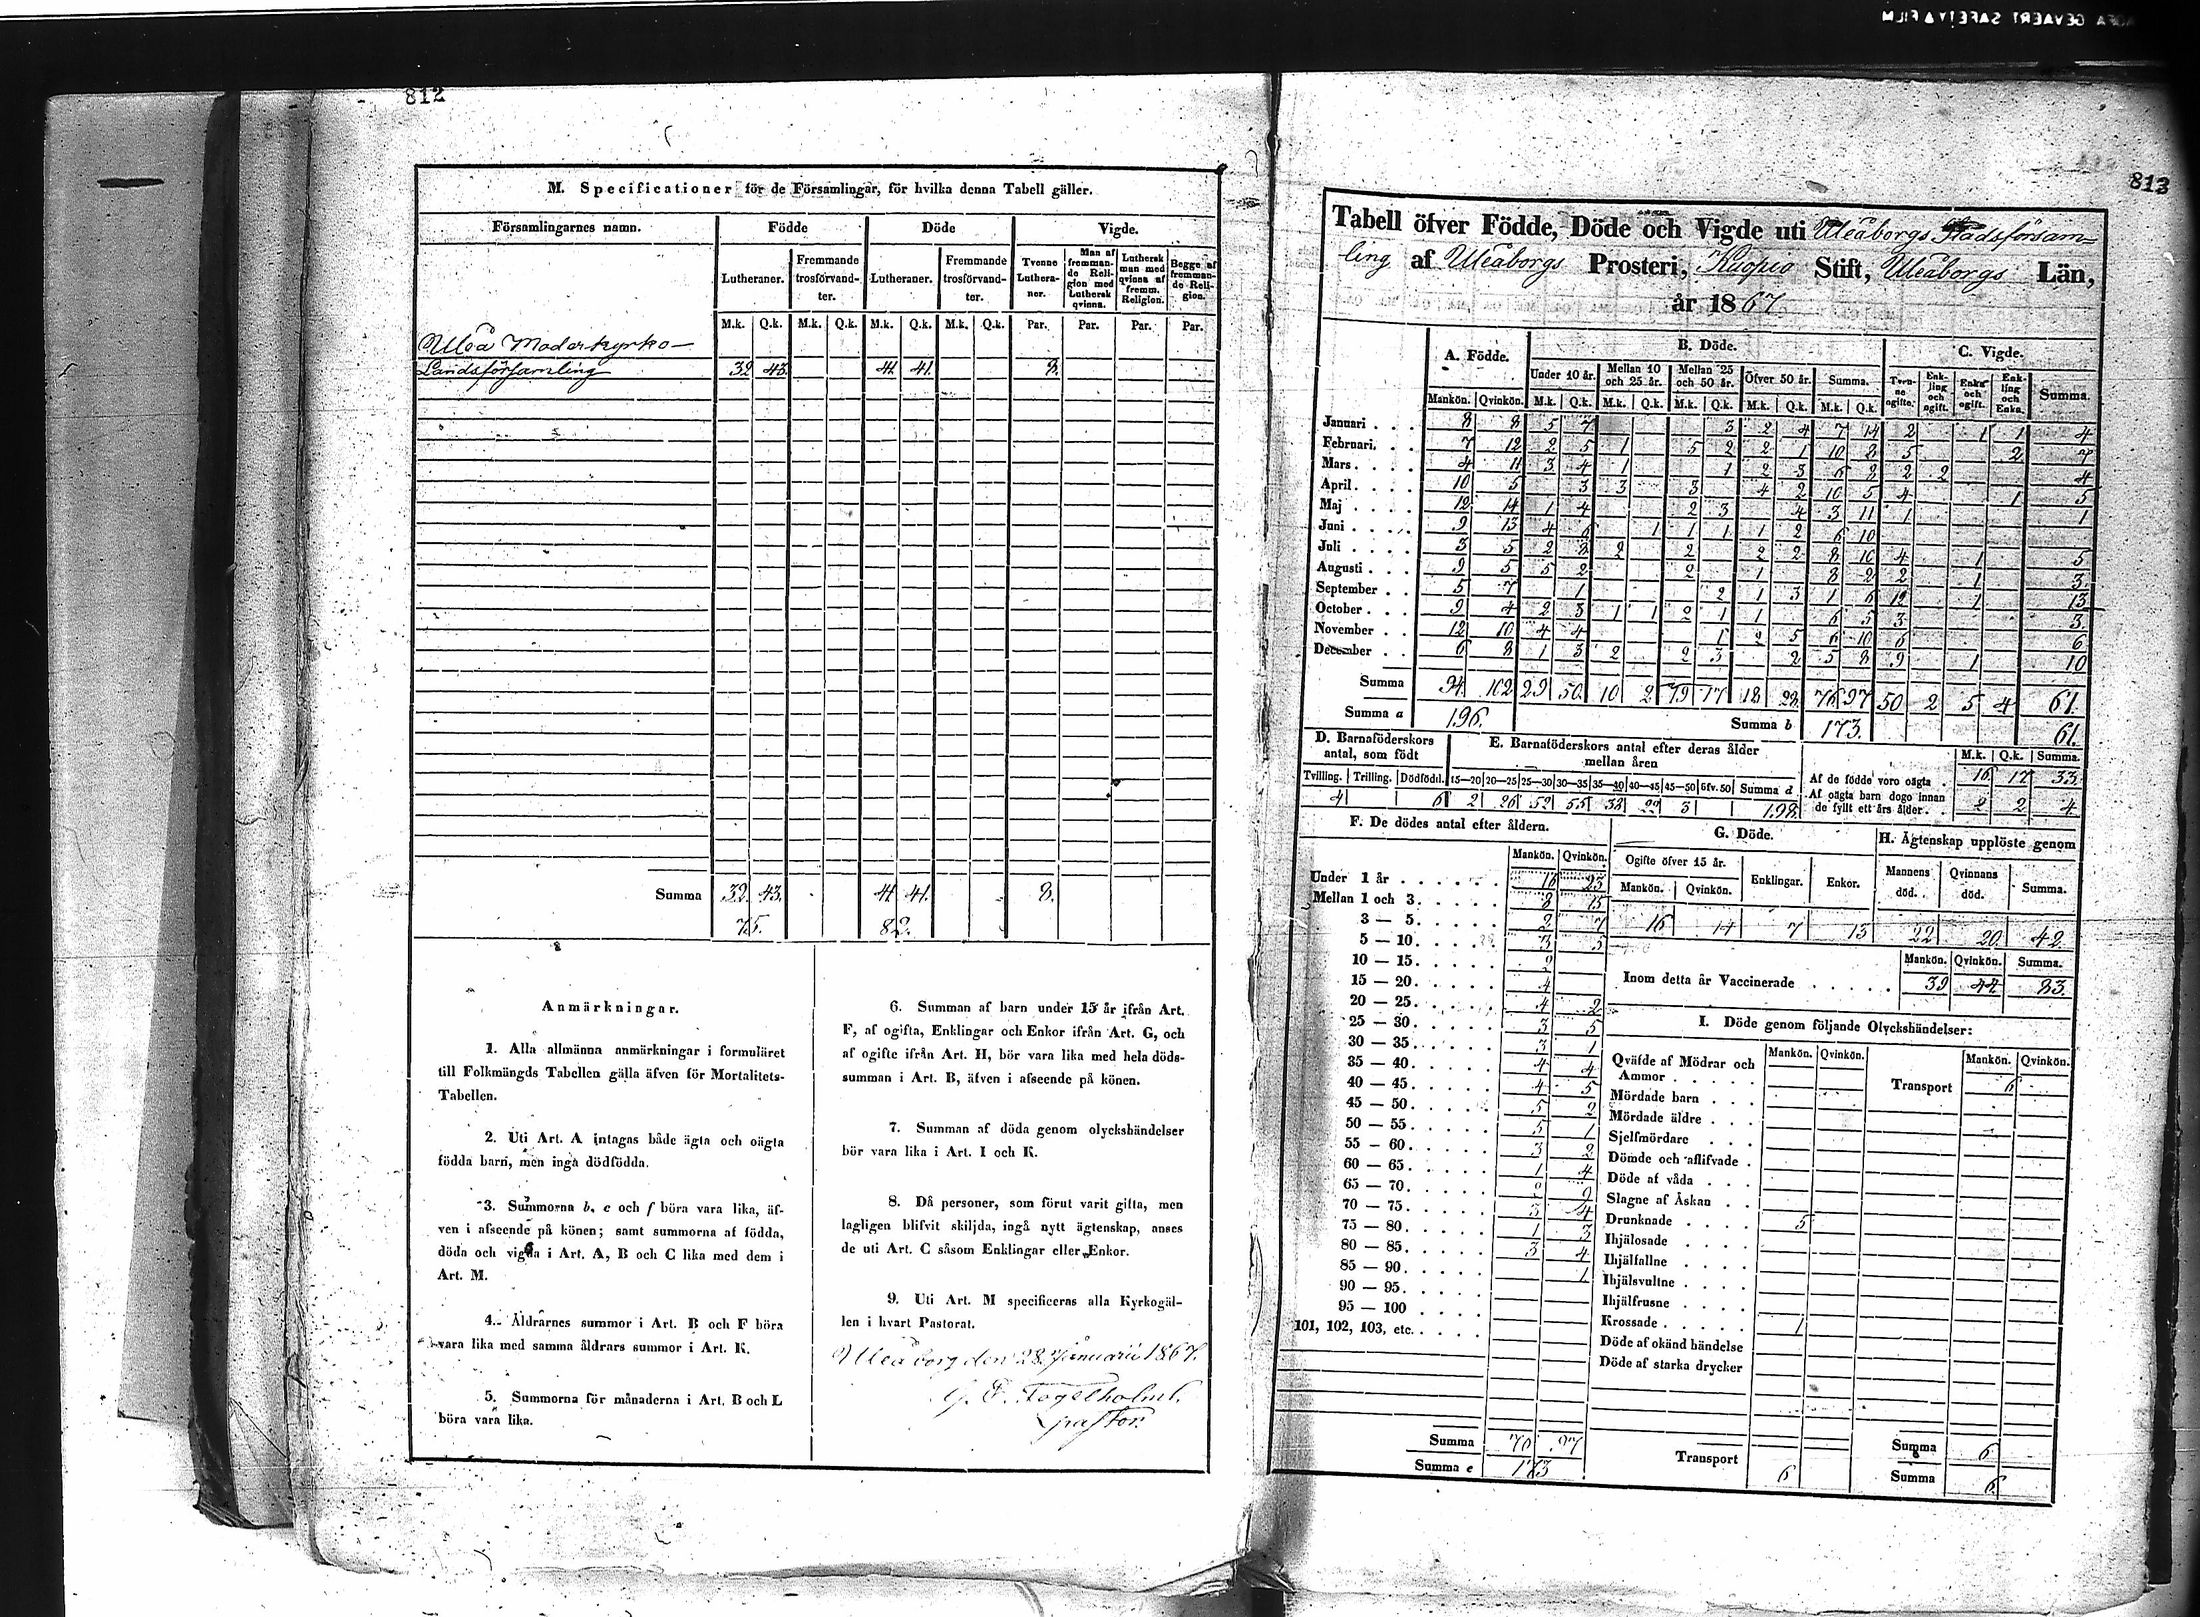 812
M. Specificationer för de Församlingar, för hvilka denna Tabell gäller.
Församlingarnes namn. Födde Döde Vigde.
Lutheraner. Fremmande trosförvandter. Lutheraner. Fremmande trosförvandter. Tvenne Lutheraner. Man af fremmande Religion med Luthersk qvinna. Luthersk man med qvinna af fremm. Religion. Begge af fremmande Religion.
M.k. Q.k. M.k. Q.k. M.k. Q.k. M.k. Q.k. Par. Par. Par. Par.
Uleå Moderkyrko-
Landsförsamling 32 43 41 41 8.
Summa 32. 43. 41 41. 8.
75. 82.
Anmärkningar.
1. Alla allmänna anmärkningar i formuläret
till Folkmängds Tabellen gälla äfven för Mortalitets-
Tabellen.
2. Uti Art. A intagas både ägta och oägta
födda barn, men inga dödfödda.
3. Summorna b, e och f böra vara lika, äf-
ven i afseende på könen; samt summorna af födda,
döda och vigda i Art. A, B och C lika med dem i
Art. M.
4. Åldrarnes summor i Art. B och F böra
vara lika med samma åldrars summor i Art. K.
5. Summorna för månaderna i Art. B och L
böra vara lika.
6. Summan af barn under 15 år ifrån Art.
F, af ogifta, Enklingar och Enkor ifrån Art. G, och
af ogifte ifrån Art. H, bör vara lika med hela döds-
summan i Art. B, äfven i afseende på könen.
7. Summan af döda genom olyckshändelser
bör vara lika i Art. I och K.
8. Då personer, som förut varit gifta, men
lagligen blifvit skiljda, ingå nytt ägtenskap, anses
de uti Art. C såsom Enklingar eller Enkor.
9. Uti Art. M specificeras alla Kyrkogäl-
len i hvart Pastorat.
Uleåborg den 28. Januarii 1867.
pastor.
813
Tabell öfver Födde, Döde och Vigde uti Uleåborgs Stadsförsam=
ling af Uleåborgs Prosteri, Kuopio Stift, Uleåborgs Län,
år 1867
A. Födde. B. Döde. C. Vigde.
Under 10 år. Mellan 10 och 25 år. Mellan 25 och 50 år. Öfver 50 år. Summa. Tvenne ogifte. Enkling och ogift. Enka och ogift. Enkling och Enka. Summa.
Mankön. Qvinkön. M.k. Q.k. M.k. Q.k. M.k. Q.k. M.k. Q.k. M.k. Q.k.
Januari 8 8 5 7 3 2 4 7 14 2 1 1 4
Februari 7 12 2 5 1 5 2 2 1 10 8 5 2 7
Mars 4 11 3 4 1 1 2 3 6 8 2 2 4
April 10 5 3 3 3 4 2 10 5 4 1 5
Maj 12 14 1 4 2 3 4 3 11 1 1
Juni 9 13 4 6 1 1 1 1 2 6 10
Juli 3 5 2 8 2 2 2 2 8 10 4 1 5
Augusti 9 5 5 2 2 1 8 2 2 1 3
September 5 7 1 2 1 3 1 6 12 1 13
October 9 4 2 3 1 1 2 1 1 6 5 3 3
November 12 10 4 4 1 2 5 6 10 6 6
December 6 8 1 3 2 2 3 2 5 8 9 1 10
Summa 94 102 29 50 10 2 19 17 18 28 76 97 50 2 5 4 61.
Summa a 196. Summa b 173. 61.
D. Barnaföderskors antal, som födt
E. Barnaföderskors antal efter deras ålder mellan åren
M.k. Q.k. Summa
Tvilling. Trilling. Dödfödd. 15—20 20—25 25—30 30—35 35—40 40—45 45—50 öfv. 50 Summa d
4 6 2 26 52 55 38 22 3 198.
Af de födde voro oägta 16 17 33
Af oägta barn dogo innan de fyllt ett års ålder 2 2 4
F. De dödes antal efter åldern.
Mankön. Qvinkön.
Under 1 år 16 23
Mellan 1 och 3 8 15
3 — 5 2 7
5 — 10 3 5
10 — 15 2
15 — 20 4
20 — 25 4 2
25 — 30 3 5
30 — 35 3 1
35 — 40 4 4
40 — 45 4 5
45 — 50 5 2
50 — 55 5 1
55 — 60 3 2
60 — 65 1 4
65 — 70 2 9
70 — 75 3 4
75 — 80 1 3
80 — 85 3 4
85 — 90 1
90 — 95
95 — 100
101, 102, 103, etc.
Summa 76 97
Summa e 173
G. Döde.
Ogifte öfver 15 år. Enklingar. Enkor.
Mankön. Qvinkön.
16 14 7 13
H. Ägtenskap upplöste genom
Mannens död. Qvinnans död. Summa.
22 20 42
Mankön. Qvinkön. Summa.
Inom detta år Vaccinerade 39 44 83.
I. Döde genom följande Olyckshändelser:
Mankön. Qvinkön. Mankön. Qvinkön.
Qväfde af Mödrar och
Ammor
Transport 6
Mördade barn
Mördade äldre
Sjelfmördare
Dömde och aflifvade
Döde af våda
Slagne af Åskan
Drunknade 5
Ihjälosade
Ihjälfallne
Ihjälsvultne
Ihjälfrusne
Krossade 1
Döde af okänd händelse
Döde af starka drycker
Transport 6
Summa 6
Summa 6